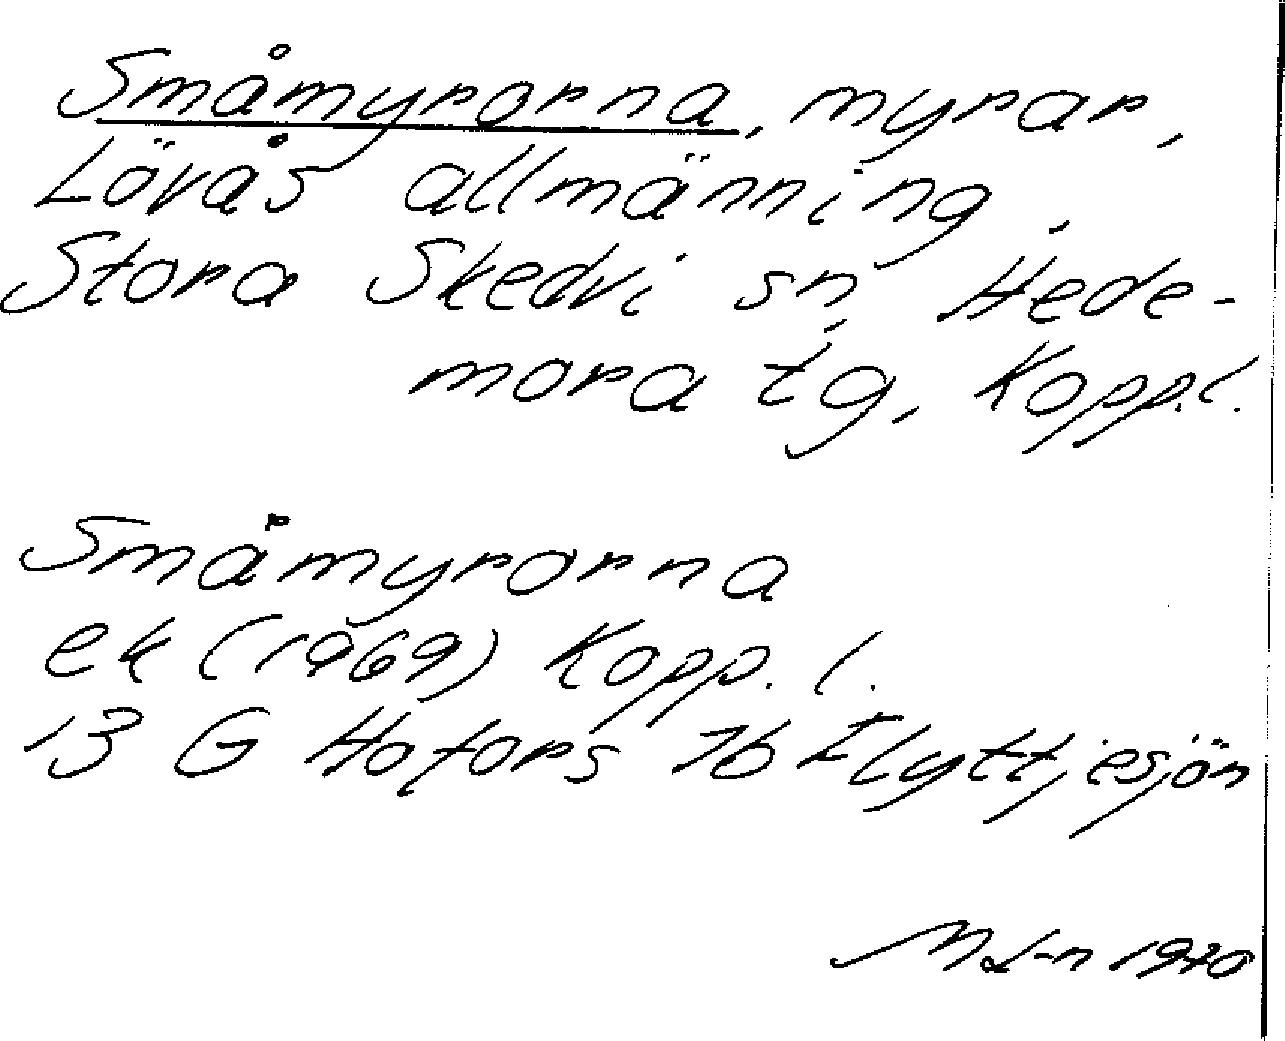 Småmyrorna, myrar,
Lövås allmänning,
Stora Skedvi sn, Hede-
mora tg, Kopp.l.
Småmyrorna
ek (1969) Kopp. l.
13 G Hofors 7b Flyttjesjön
M L-n 1970